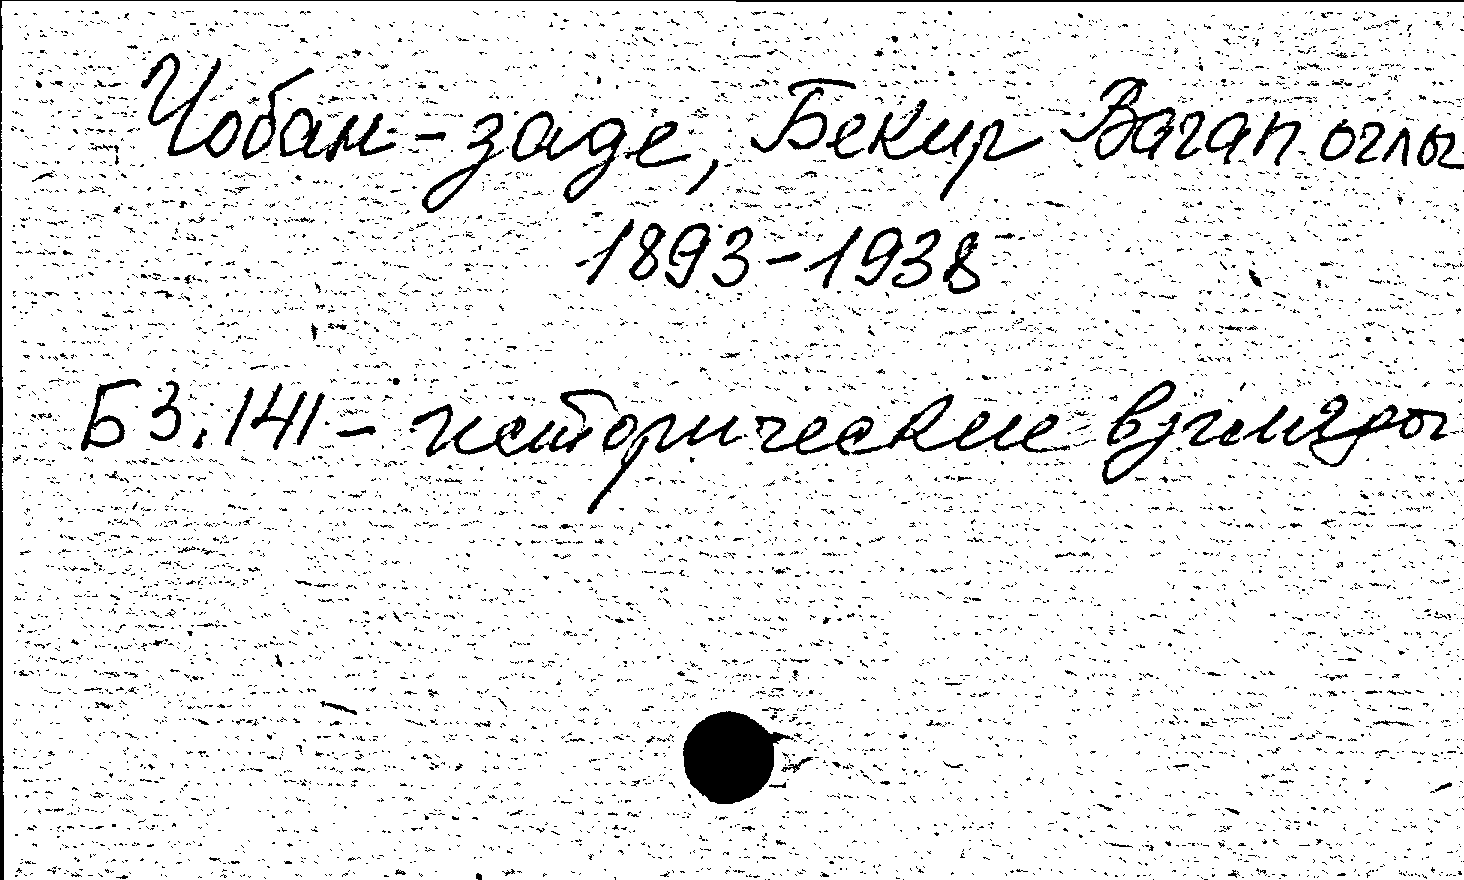 Чобан-заде, Бекир Вагап оглы
1893-1938
Б3.141 - исторические взгляды